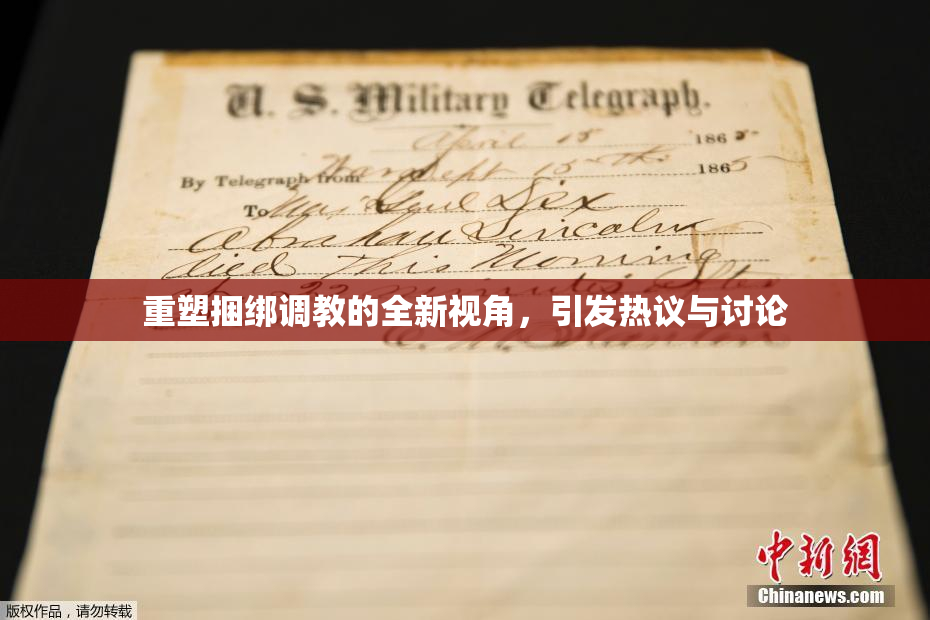 U. S. Military Telegraph.
April 15 1865
By Telegraph from War Dept 15th 1865
To Maj Genl Dix
Abraham Lincoln
died This Morning
at 22 minutes after
重塑捆绑调教的全新视角，引发热议与讨论
E. M. Stanton
中新网
Chinanews.com
版权作品，请勿转载